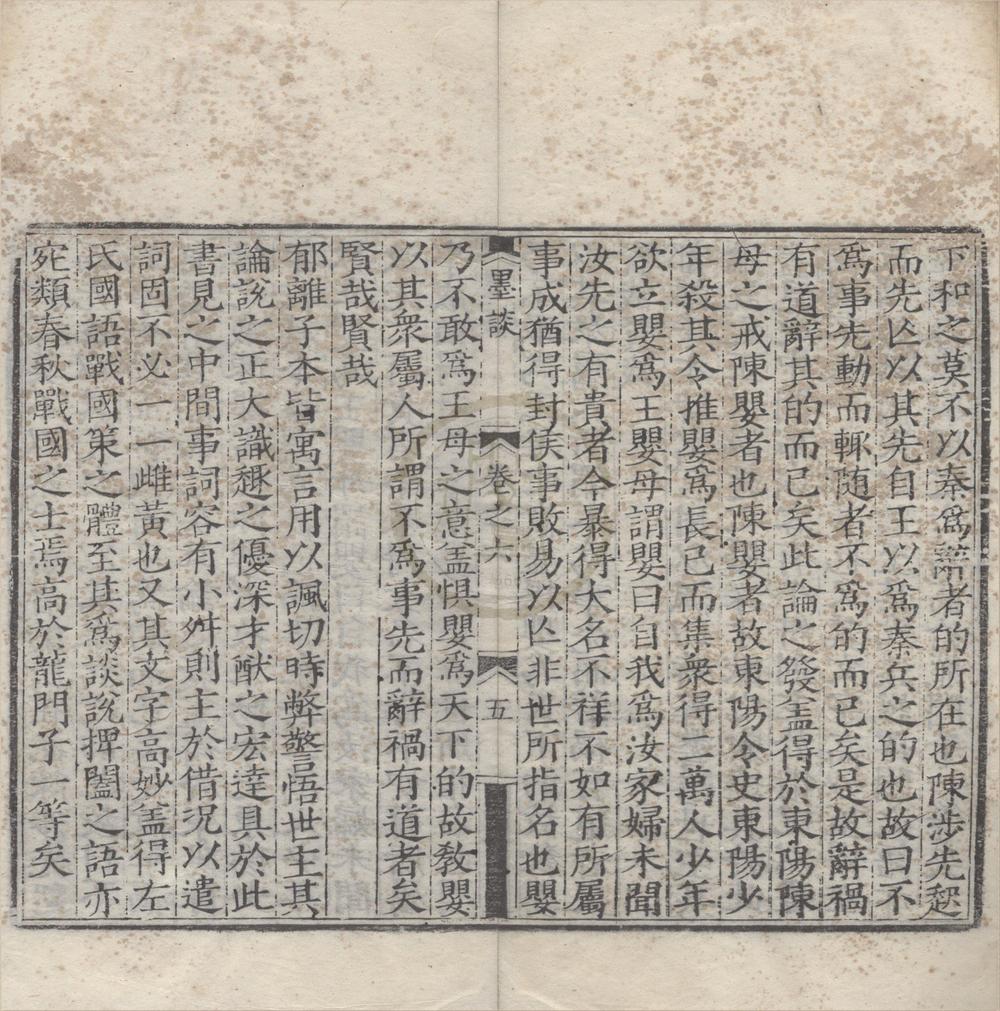 下和之莫不以秦爲辭者的所在也陳涉先起
而先亾以其先自王以爲秦兵之的也故曰不
爲事先動而輒随者不爲的而已矣是故辭禍
有道辭其的而已矣此論之發盖得於東陽陳
母之戒陳嬰者也陳嬰者故東陽令史東陽少
年殺其令推嬰爲長已而集衆得二萬人少年
欲立嬰爲王嬰母謂嬰曰自我爲汝家婦未聞
汝先之有貴者今暴得大名不祥不如有所屬
事成猶得封侯事敗易以亾非世所指名也嬰
墨談 卷之六 五
乃不敢爲王母之意盖惧嬰爲天下的故教嬰
以其衆屬人所謂不爲事先而辭禍有道者矣
賢哉賢哉
郁離子本皆寓言用以諷切時弊警悟世主其
論說之正大識趣之優深才猷之宏達具於此
書見之中間事詞容有小舛則主於借况以遣
詞固不必一一雌黃也又其文字高妙盖得左
氏國語戰國策之體至其爲談說捭闔之語亦
宛類春秋戰國之士焉高於龍門子一等矣